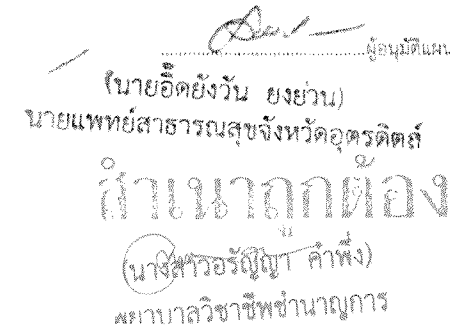 ผู้อนุมัติแผน
(นายอิ๊ดยังวัน ยงย่วน)
นายแพทย์สาธารณสุขจังหวัดอุตรดิตถ์
สำเนาถูกต้อง
(นางสาวอรัญญา คำพึ่ง)
พยาบาลวิชาชีพชำนาญการ